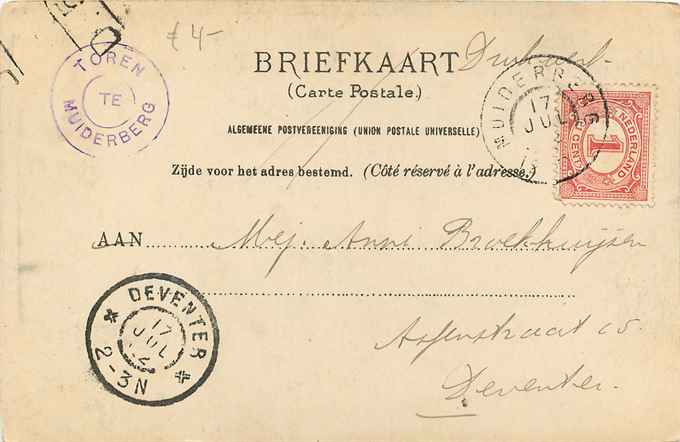 £ 4-
TOREN
TE
MUIDERBERG
BRIEFKAART Drukwerk.
(Carte Postale.)
ALGEMEENE POSTVEREENIGING (UNION POSTALE UNIVERSELLE)
Zijde voor het adres bestemd. (Côté réservé à l'adresse.)
MUIDERBERG
17
JUL
NEDERLAND
1
CENT
AAN Mej. Anni Broekhuijsen
DEVENTER
17
JUL
12
2-3N
15.
Deventer.